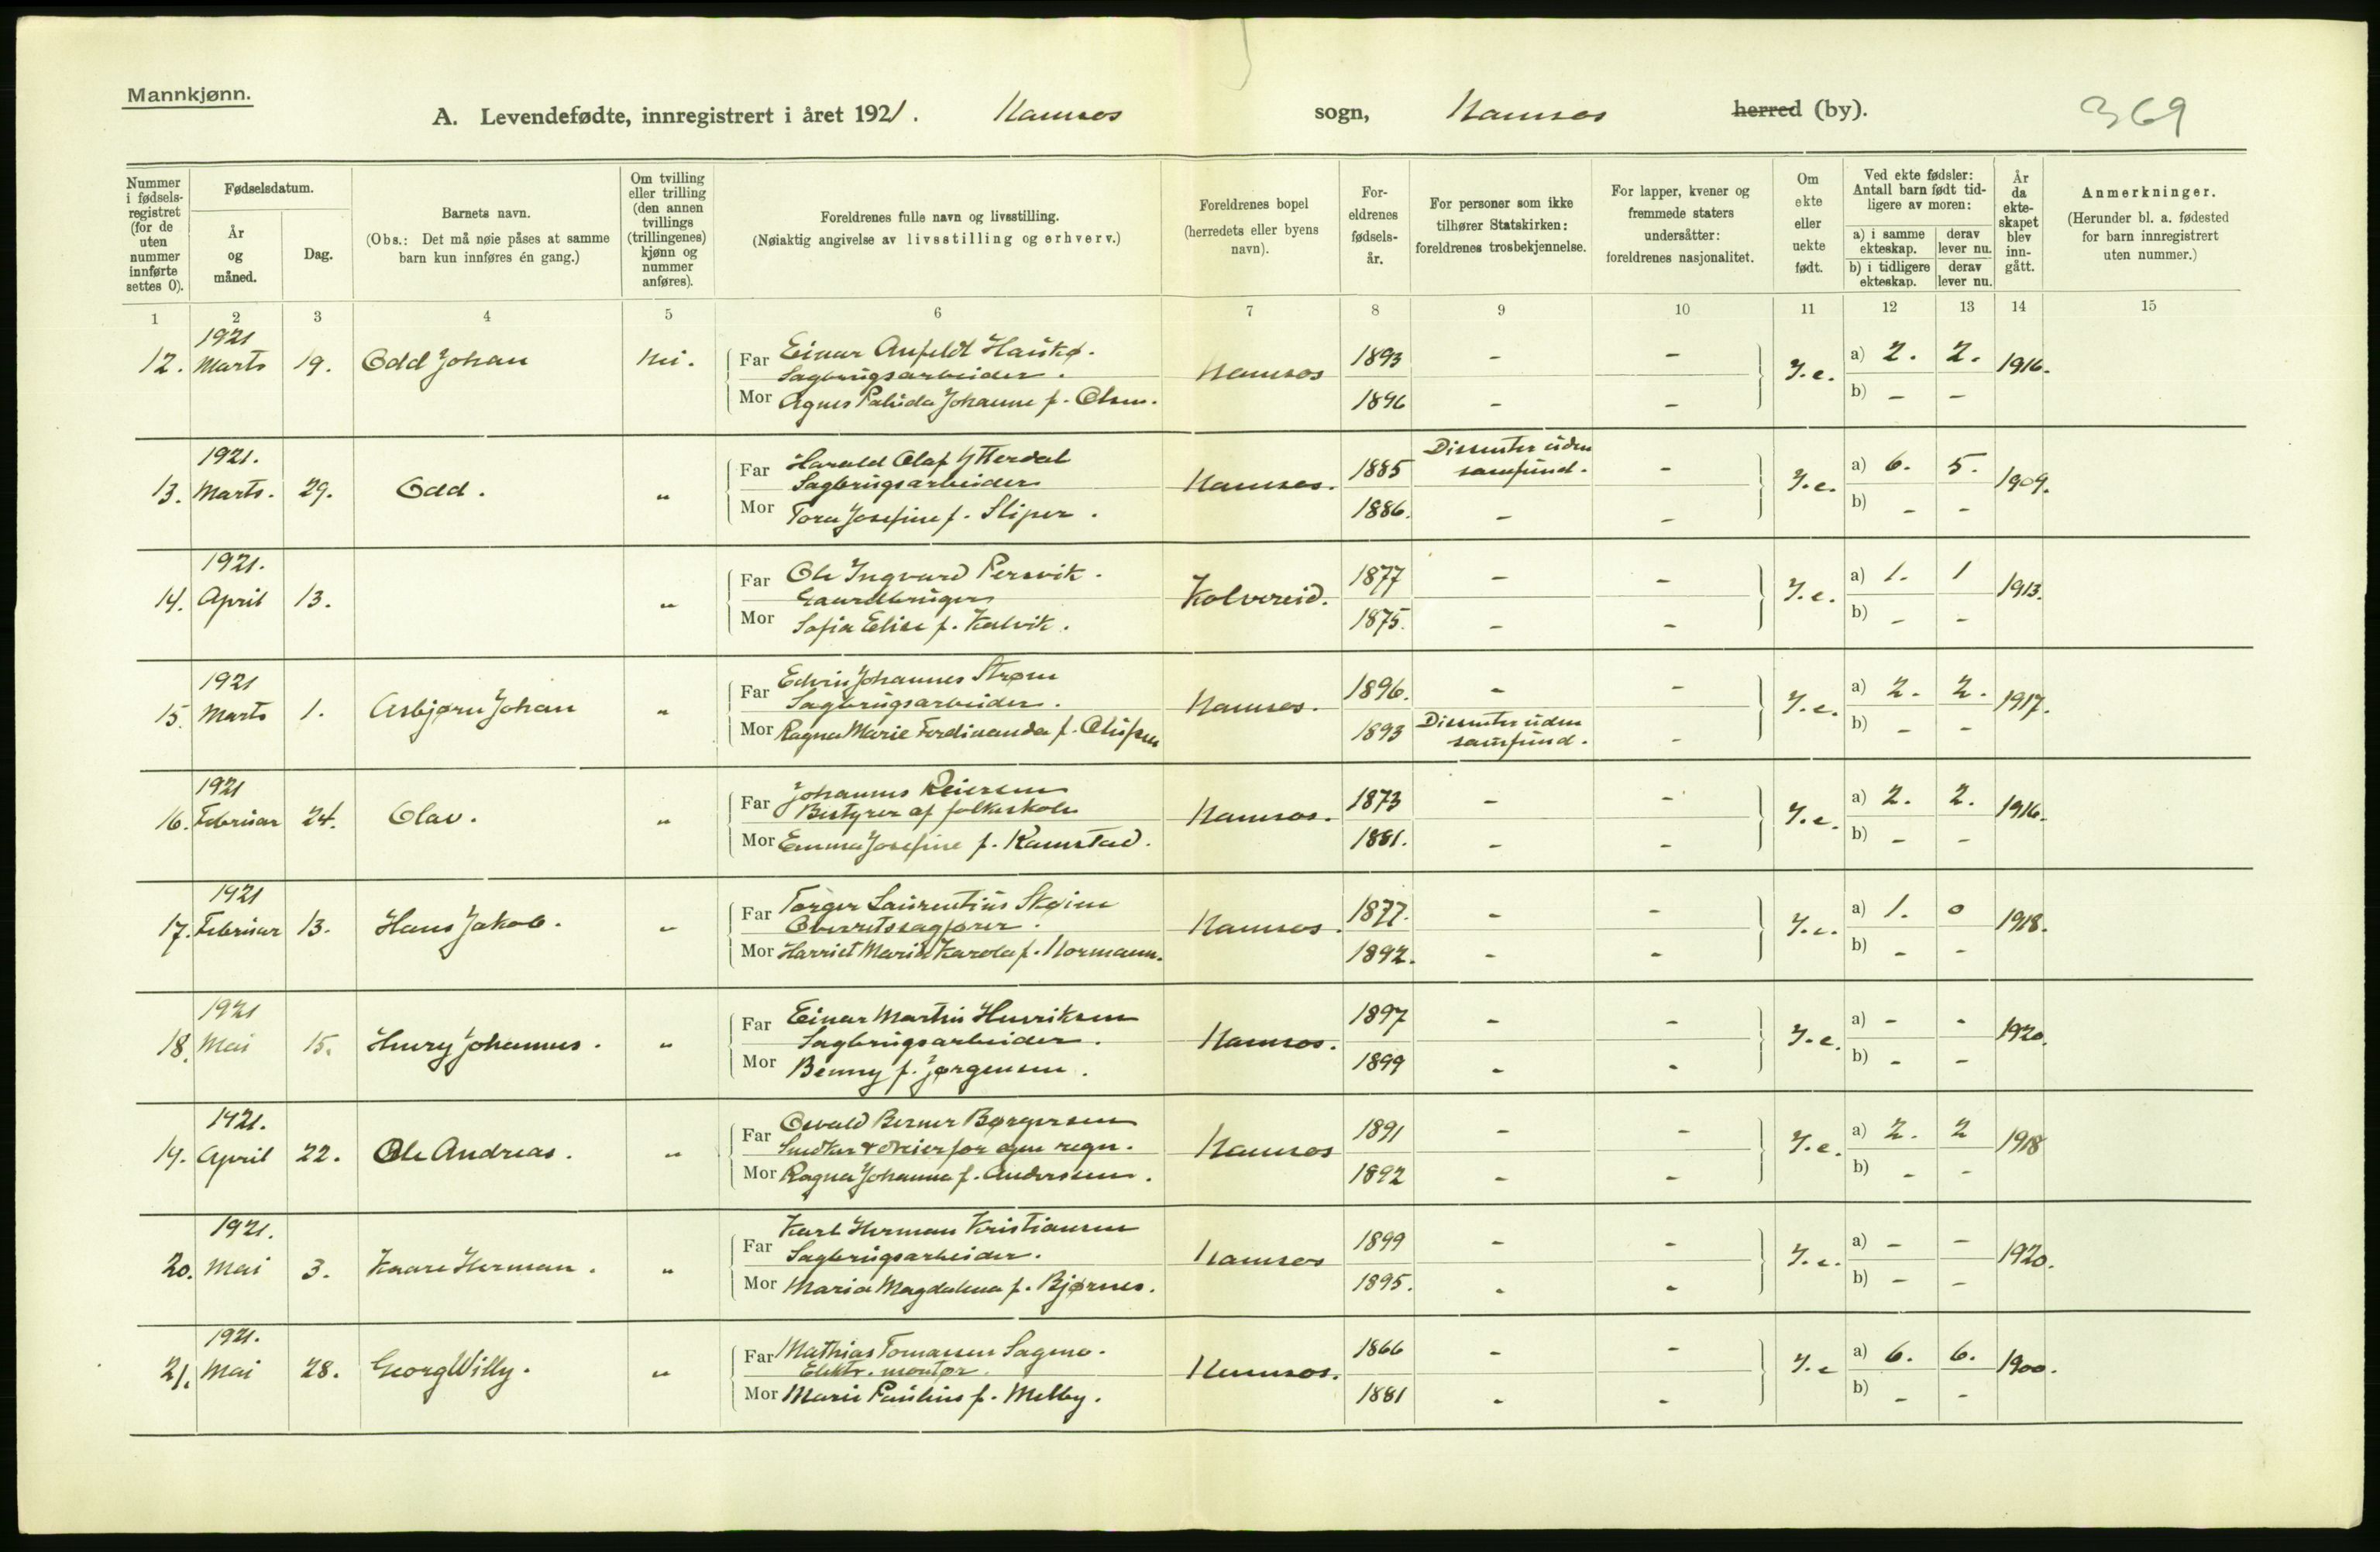 Mannkjønn.
A. Levendefødte, innregistrert i året 1921. Namsos sogn, Namsos herred (by). 369
Nummer i fødsels-registret (for de uten nummer innførte settes 0).
Fødselsdatum.
År og måned.
Dag.
Barnets navn.
(Obs.: Det må nøie påses at samme barn kun innføres én gang.)
Om tvilling eller trilling (den annen tvillings (trillingenes) kjønn og nummer anføres).
Foreldrenes fulle navn og livsstilling.
(Nøiaktig angivelse av livsstilling og erhverv.)
Foreldrenes bopel (herredets eller byens navn).
For-eldrenes fødsels-år.
For personer som ikke tilhører Statskirken: foreldrenes trosbekjennelse.
For lapper, kvener og fremmede staters undersåtter: foreldrenes nasjonalitet.
Om ekte eller uekte født.
Ved ekte fødsler: Antall barn født tid-ligere av moren:
a) i samme ekteskap. derav lever nu.
b) i tidligere ekteskap. derav lever nu.
År da ekte-skapet blev inn-gått.
Anmerkninger.
(Herunder bl. a. fødested for barn innregistrert uten nummer.)
1 2 3 4 5 6 7 8 9 10 11 12 13 14 15
1921
12. Marts 19. Odd Johan Nei. Far Einar Anfeldt
Sagbrugsarbeider. Namsos 1893 - - Y.e. a) 2. 2. 1916.
Mor Agnes Johanne f. Olsen. 1896 - - b) - -
1921.
13. Marts. 29. Odd. " Far Harald Olaf Ytterdal
Sagbrugsarbeider Namsos. 1885 Dissenter uden samfund. - Y.e. a) 6. 5. 1909.
Mor Tora Josefine f. Sliper. 1886. - - b) - -
1921.
14. April 13. " Far Ole Ingvard Persvik.
Gaardbruger Kolvereid. 1877 - - Y.e. a) 1. 1 1913.
Mor Sofia Elise f. Kalvik. 1875. - - b) - -
1921
15. Marts 1. Asbjørn Johan " Far Edvin Johannes Strøm
Sagbrugsarbeider. Namsos. 1896. - - Y.e. a) 2. 2. 1917.
Mor Ragna Marie Ferdinanda f. Olufsen 1893 Dissenter uden samfund. - b) - -
1921
16. Februar 24. Olav. " Far Johannes Reiersen
Bestyrer af folkeskole Namsos. 1873 - - Y.e. a) 2. 2. 1916.
Mor Emma Josefine f. Ramstad. 1881. - - b) - -
1921
17. Februar 13. Hans Jakob. " Far Torger Laurentius Skøien
Overretssagfører. Namsos. 1877. - - Y.e. a) 1. 0 1918.
Mor Harriet Marie Karola f. Normann. 1892. - - b) - -
1921
18. Mai 15. Henry Johannes. " Far Einar Martin Henriksen
Sagbrugsarbeider. Namsos. 1897 - - Y.e. a) - - 1920.
Mor Benny f. Jørgensen. 1899 - - b) - -
1921.
19. April 22. Ole Andreas. " Far Osvald Berner Børgersen
Snedker & dreier for egen regn. Namsos 1891 - - Y.e. a) 2. 2 1918
Mor Ragna Johanna f. Anderssen. 1892 - - b) - -
1921.
20. Mai 3. Kaare Herman. " Far Karl Herman Kristiansen
Sagbrugsarbeider. Namsos 1899 - - Y.e. a) - - 1920.
Mor Maria Magdalena f. Bjørnes. 1895. - - b) - -
1921.
21. Mai 28. Georg Willy. " Far Mathias Tomassen Sagmo.
Elektr. montør. Namsos. 1866 - - Y.e a) 6. 6. 1900.
Mor Marie Pauline f. Melby. 1881 - - b) - -